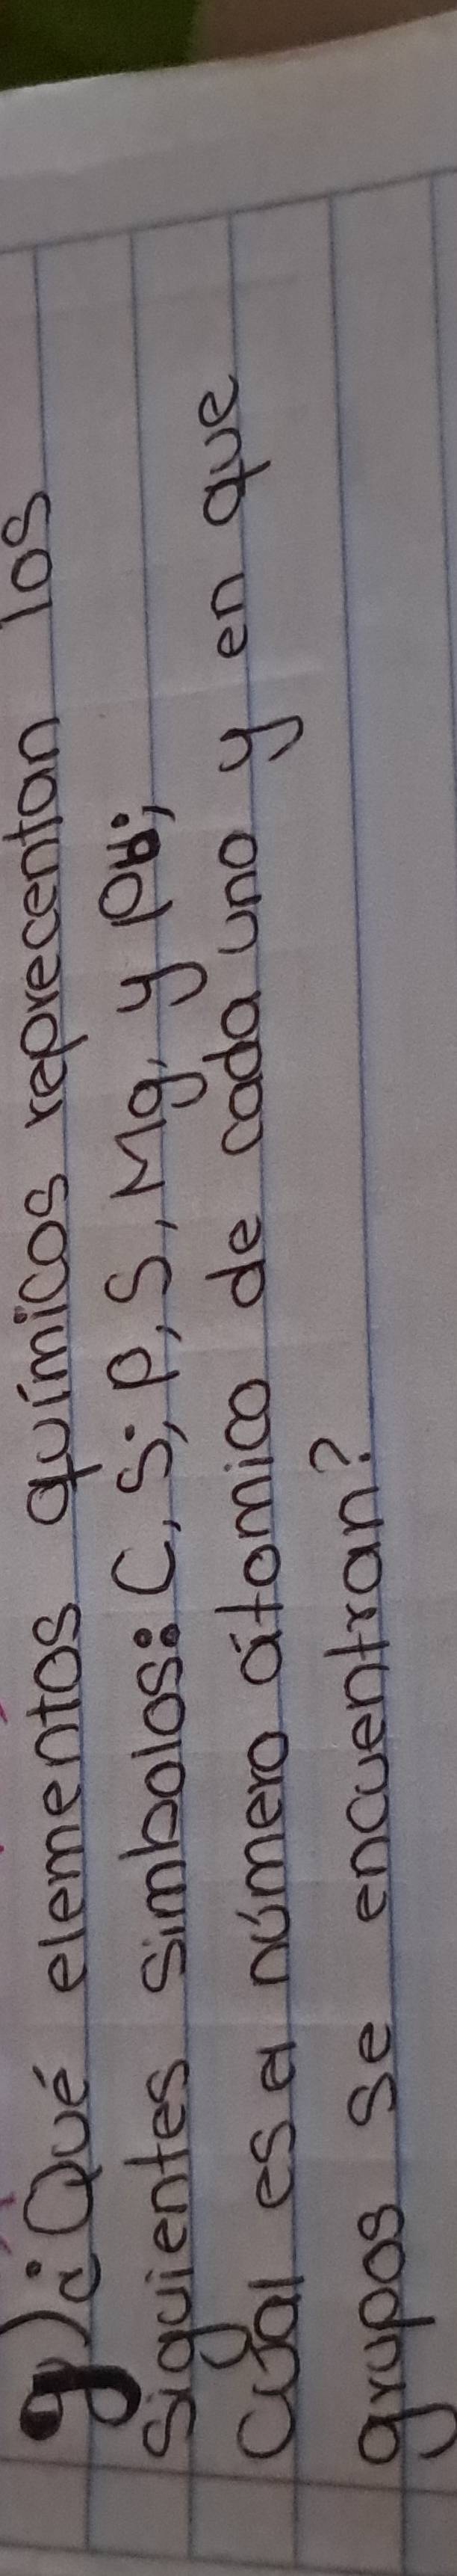 g) ¿Qué elementos químicos reprecentan los
siguientes simbolos: C, Si, P, S, Mg, y Pb;
Cúal es el número átomico de cada uno y en que
grupos se encuentran?